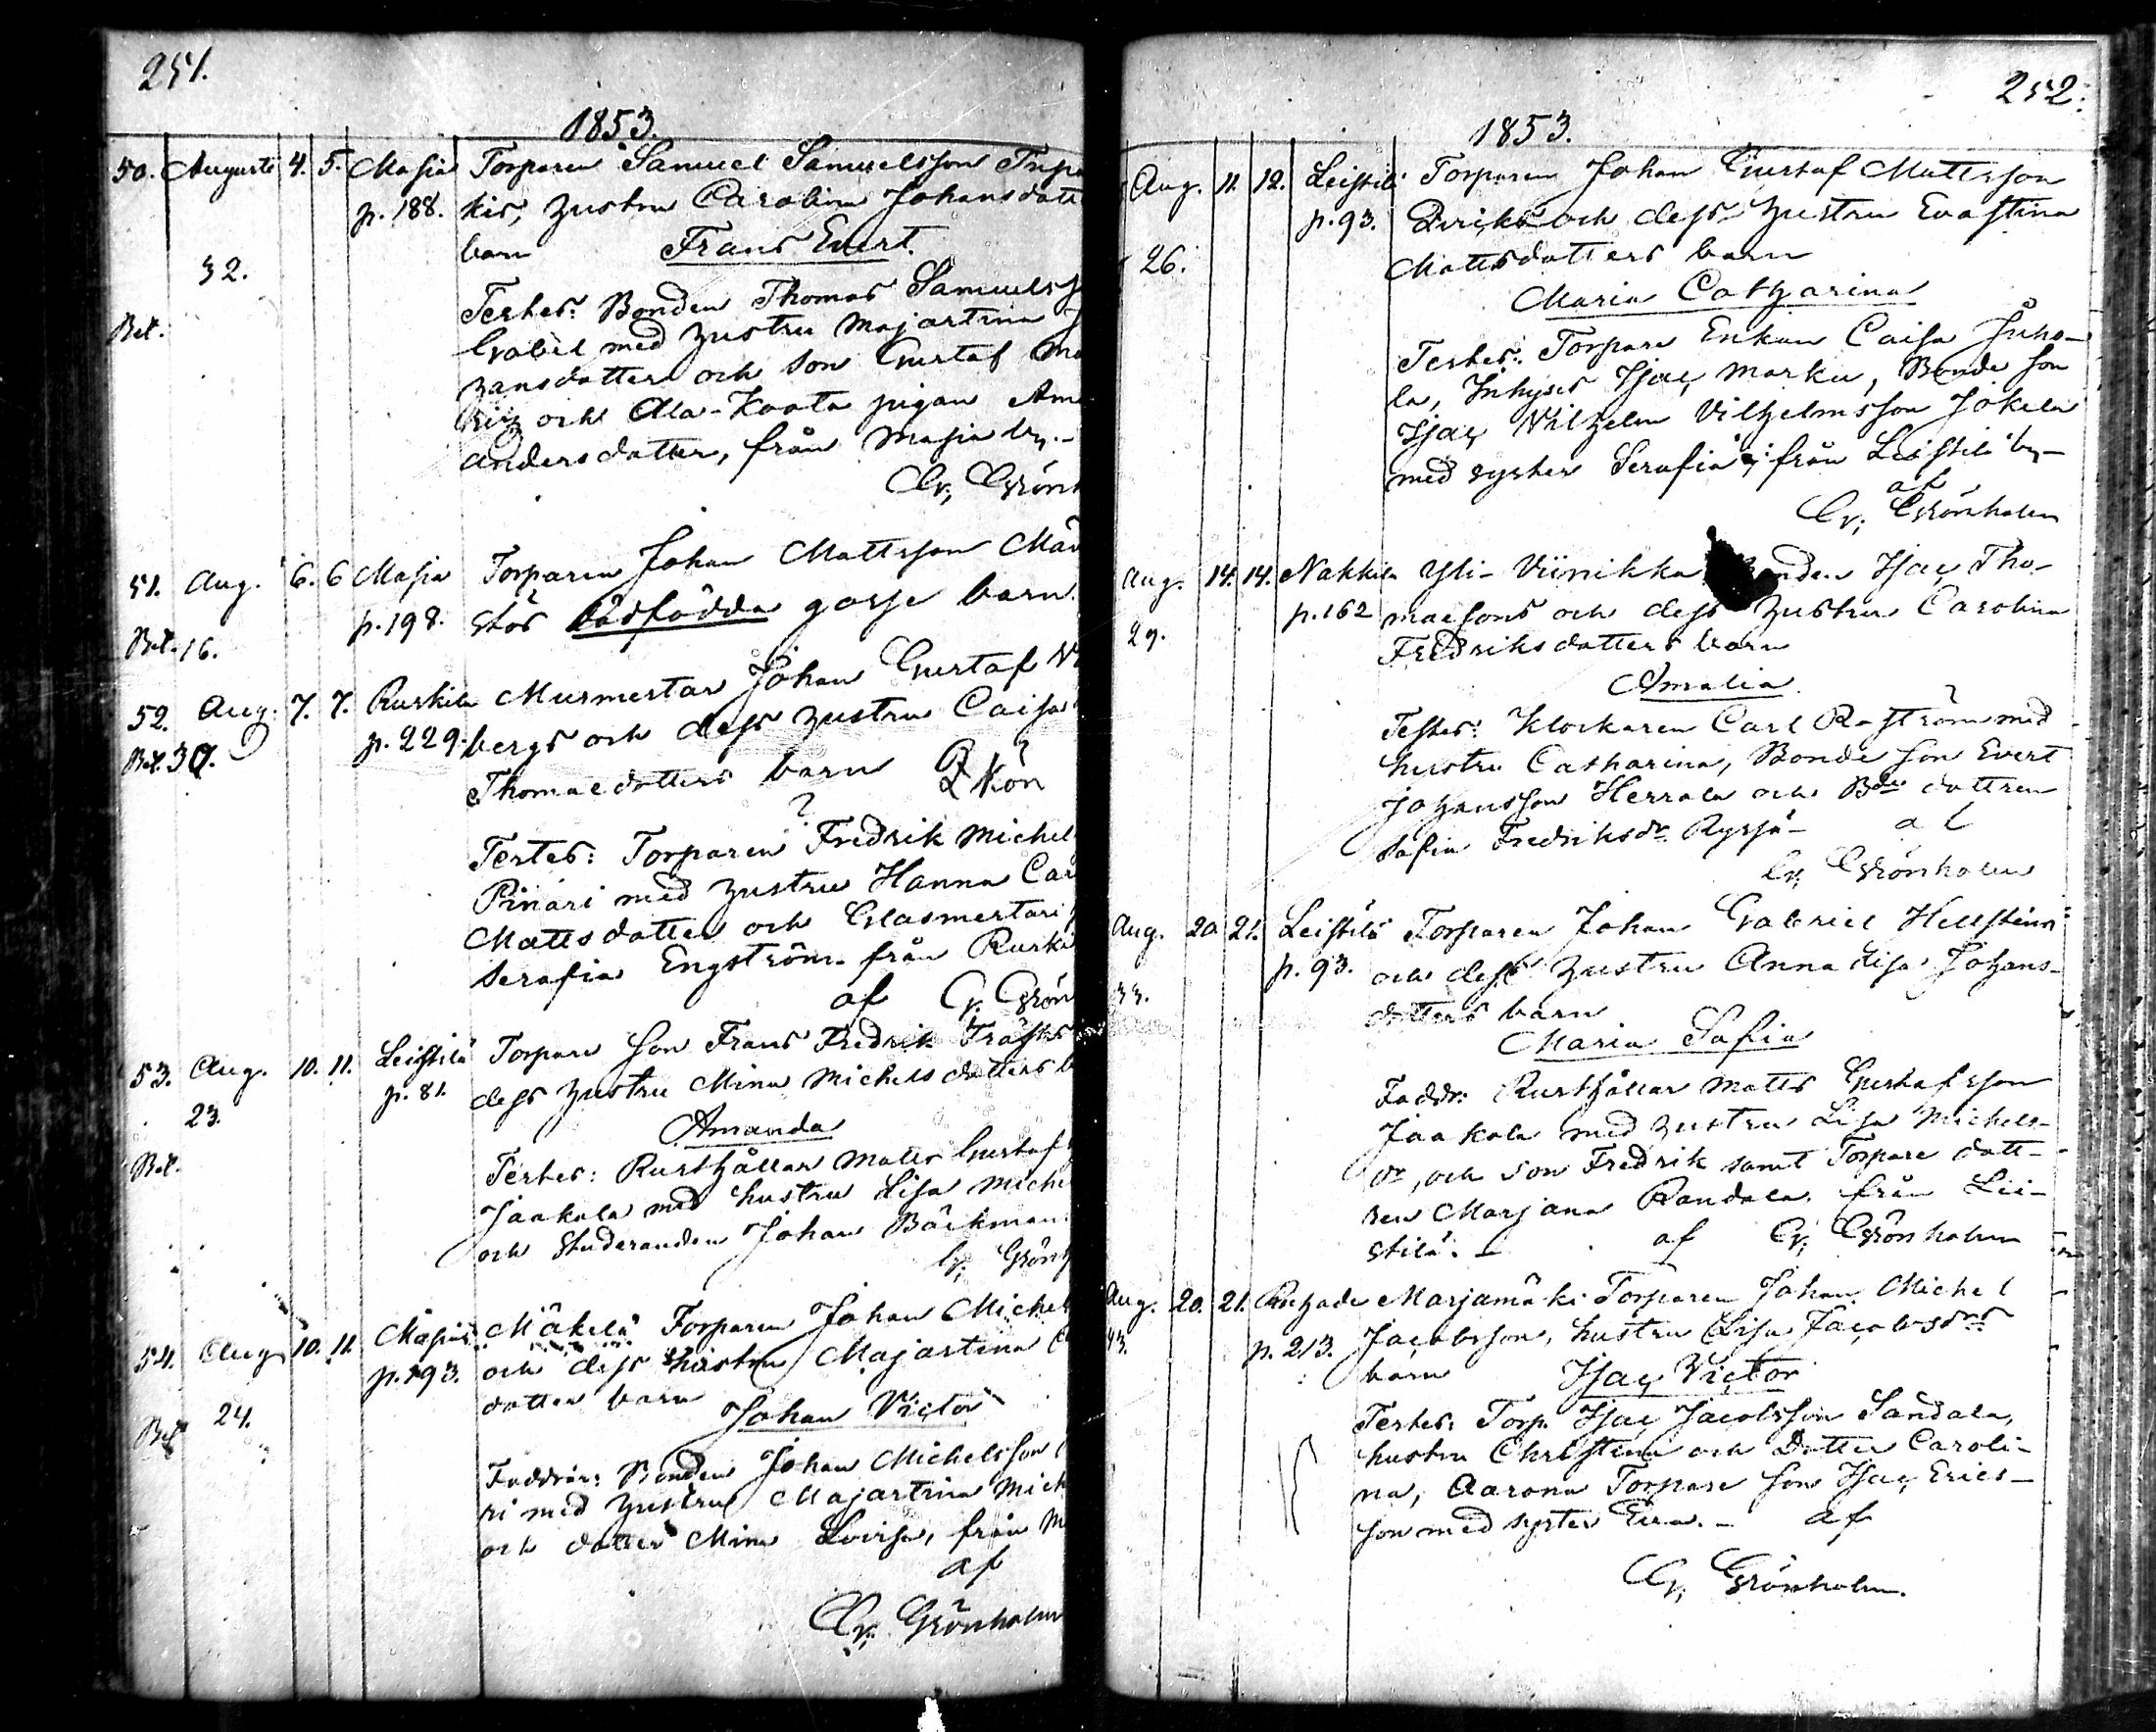 251.
1853.
50. Augusti 4. 5. Masia Torparen Samuel Samuelsson
p. 188. kis, hustru Carolina Johansdott
barn Frans Evert.
32.
Testes: Bonden Thomas Samuelss
Bet. med hustru Majastina
hansdotter och son Gustaf
och Ala-Kaata pigan
Andersdotter, från Masia by.-
Gr: Grönh
51. Aug. 6. 6 Masia Torparen Johan Mattsson
p. 198. dödfödda gosse barn.
Bet. 16.
52. Aug. 7. 7. Ruskila Murmestar Johan Gustaf
Bet. 30. p. 229. bergs och dess hustru Caisa
Thomaedotters barn Qkön
?
Testes: Torparen Fredrik Michel
Pinari med hustru Hanna Car
Mattsdotter och Glasmestari
Serafia Engström från Ruski
af Gr. Grön
53. Aug. 10. 11. Leistilä Torpare son Frans Fredrik Träsks
p. 81. dess hustru Mina Michelsdotters b
23.
Amanda
Bet.
Testes: Rusthållar Matts Gustaf
Jaakola med hustru Lisa Miche
och Studeranden Johan Bäckman.
Gr: Grönh
54. Aug 10. 11. Masia Mäkelä Torparen Johan Michel
p. 193. och dess hustru Majastina
dotter barn
Johan Victor
Bet 24.
Faddrar: Bonden Johan Michelsson
ri med hustru Majastina Mich
och dotter Mina Lovisa, från M
af
Gr: Grönholm
252.
1853.
Aug. 11. 12. Leistilä Torparen Johan Gustaf Mattsson
p. 93. och dess hustru Evastina
26. Mattsdotters barn
Maria Catharina
Testes: Torpare Enkan Caisa Juho-
la, Inhyses Isac Marku, Bonde son
Isac Wilhelm Vilhelmsson Jokela
med syster Serafia, från Leistilä by-
af
Gr: Grönholm
Aug. 14. 14. Nakkila Yli-Viinikka Isac Tho-
p. 162 maesons och dess hustru Carolina
29. Fredriksdotters barn
Amalia.
Testes: Klockaren Carl Roström med
hustru Catharina, Bonde son Evert
Johansson Herrala och Bde dottren
Safia Fredriksdr. Ryssä- af
Gr: Grönholm
Aug. 20 21. Leistilä Torparen Johan Gabriel Hellsten
p. 93. och dess hustru Anna Lisa Johans-
33. dotters barn
Maria Safia
Faddr: Rusthållar Matts Gustafsson
Jaakola med hustru Lisa Michels-
dr, och son Fredrik samt Torpare dott-
ren Marjana Randala från Lei-
stilä.- af Gr: Grönholm
Aug. 20. 21. Marjamäki Torparen Johan Michel
p. 213. Jacobsson, hustru Lisa Jacobsdrs
barn Isac Victor
Testes: Torp. Isac Jacobsson Sandala,
hustru Christina och Dotter Caroli-
na, Aarona Torpare son Isac Erics-
son med syster Eva.- af
Gr: Grönholm.